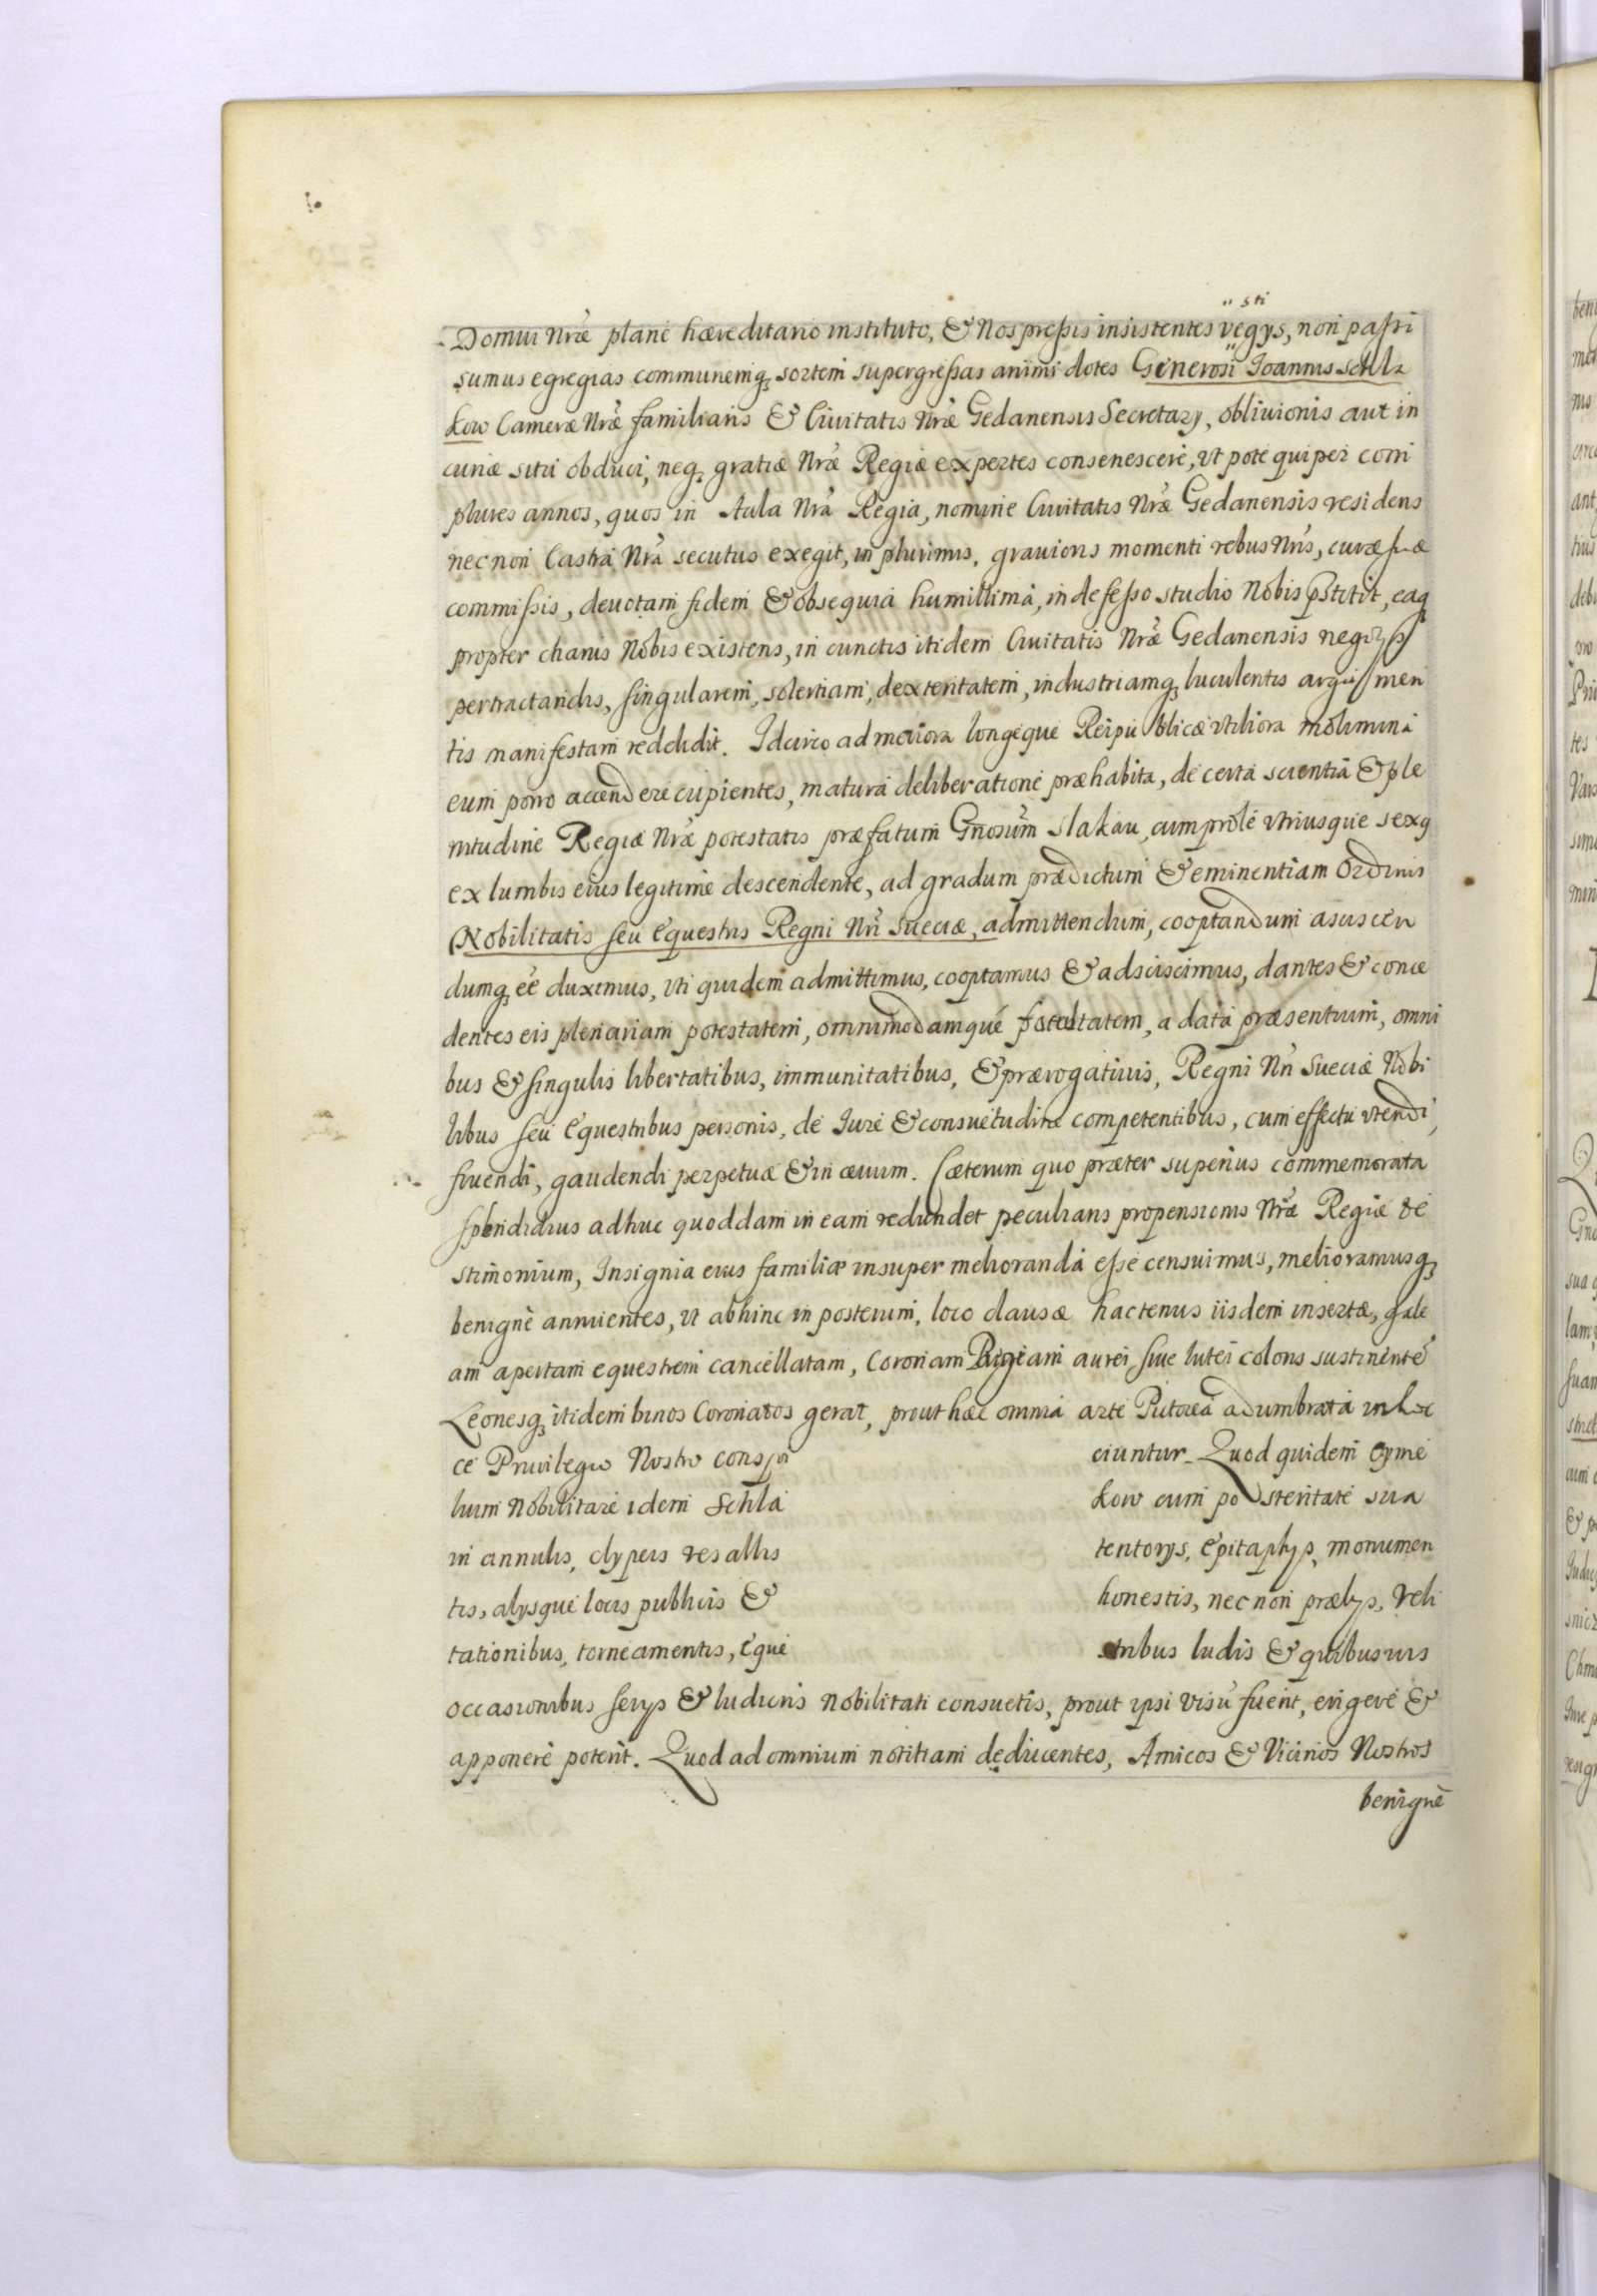 sti
Domui Nr̃æ plane hæreditario instituto, & Nos preßis insistentes vegijs, non paßi
sumus egregias communemq sortem supergreßas animi dotes Generosi Joannis Schla
kow Cameræ Nr̃æ familiaris & Ciuitatis Nr̃æ Gedanensis Secretarij, obliuionis aut in
curiæ situ obduci, neq gratiæ Nr̃æ Regiæ expertes consenescere, vt pote qui per com
plures annos, quos in Aula Nr̃a Regia, nomine Ciuitatis Nr̃æ Gedanensis residens
nec non Castra Nr̃a secutus exegit, in plurimis, grauioris momenti rebus Nr̃is, curæ suæ
commißis, deuotam fidem & obsequia humillima, indefeßo studio Nobis pstitit, eaq
propter charus Nobis existens, in cunctis itidem Ciuitatis Nr̃æ Gedanensis negotijs
pertractandis, singularem, solertiam, dexteritatem, industriamq luculentis argu men
tis manifestam reddidit. Idcirco ad maiora longeque Reipu blicæ vtiliora molimina
eum porro accendere cupientes, matura deliberatione præhabita, de certa scientia & ple
nitudine Regiæ Nr̃æ potestatis præfatum Gnosum Slakau, cum prole vtriusque sexq
ex lumbis eius legitime descendente, ad gradum prædictum & eminentiam Ordinis
Nobilitatis seu Equestris Regni Nr̃i Sueciæ, admittendum, cooptandum asciscen
dumq eē duximus, vti quidem admittimus, cooptamus & adsciscimus, dantes & conce
dentes eis plenariam potestatem, omnimodamque facultatem, a data præsentium, omni
bus & singulis libertatibus, immunitatibus, & prærogatiuis, Regni Nr̃i Sueciæ Nobi
libus seu Equestribus personis, de Iure & consuetudine competentibus, cum effectu vtendi,
fruendi, gaudendi perpetuæ & in æuum. Cæterum quo præter superius commemorata
splendidius adhuc quoddam in eam redundet peculiaris propensionis Nr̃æ Regiæ te
stimonium, Insignia eius familiæ insuper melioranda eße censuimus, melioramusq
benignè annuientes, vt abhinc in posterum, loco clausæ hactenus iisdem insertæ, gale
am apertam equestrem cancellatam, Coronam Regiam aurei siue lutei coloris sustinente
Leonesq itidem binos Coronatos gerat, prout hæc omnia arte Pictorea adumbrata in hoc
ce Priuilegio Nostro conspi ciuntur. Quod quidem Cyme
lium Nobilitare idem Schla kow cum po steritate sua
in annulis, clypeis vexillis tentorijs, Epitaphijs, monumen
tis, alijsque locis publicis & honestis, nec non prælijs, Veli
tationibus, torneamentis, Eque stribus ludis & quibusuis
occasionibus serijs & ludicris Nobilitati consuetis, prout ipsi visũ fuerit, erigere &
apponere poterit. Quod ad omnium notitiam deducentes, Amicos & Vicinos Nostros
benignè